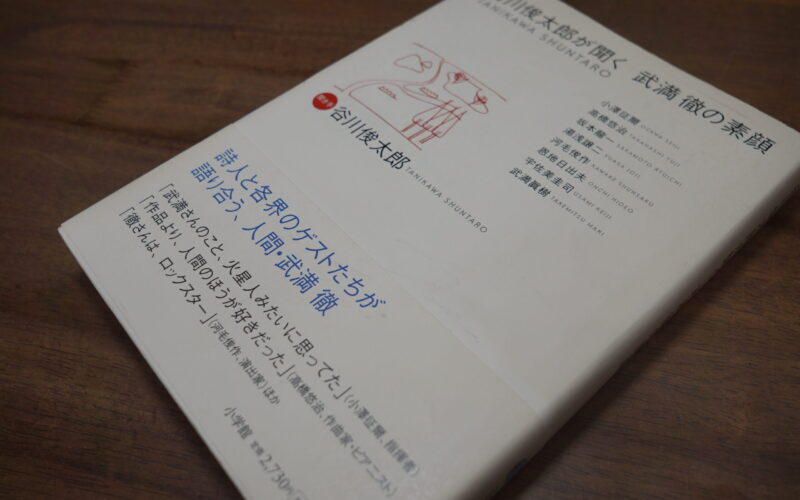 川俊太郎が聞く 武満 徹の素顔
TANIKAWA SHUNTARO
小澤征爾 OZAWA SEIJI
高橋悠治 TAKAHASHI YUJI
坂本龍一 SAKAMOTO RYUICHI
湯浅譲二 YUASA JOJI
河毛俊作 KAWAKE SHUNSAKU
恩地日出夫 ONCHI HIDEO
宇佐美圭司 USAMI KEIJI
武満眞樹 TAKEMITSU MAKI
聞き手 谷川俊太郎 TANIKAWA SHUNTARO
詩人と各界のゲストたちが
語り合う、人間・武満 徹
「武満さんのこと、火星人みたいに思ってた」(小澤征爾、指揮者)
「作品より、人間のほうが好きだった」(高橋悠治、作曲家・ピアニスト)
「徹さんは、ロックスター」(河毛俊作、演出家)ほか
小学館 定価2,730円